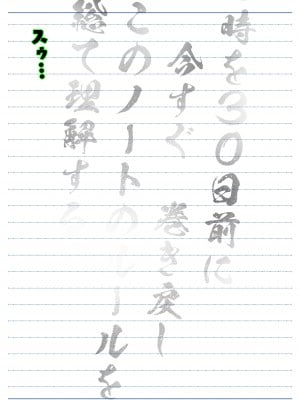 時を30日前に
巻き戻し
今すぐ
このノートのルールを
総て理解する
スゥ…